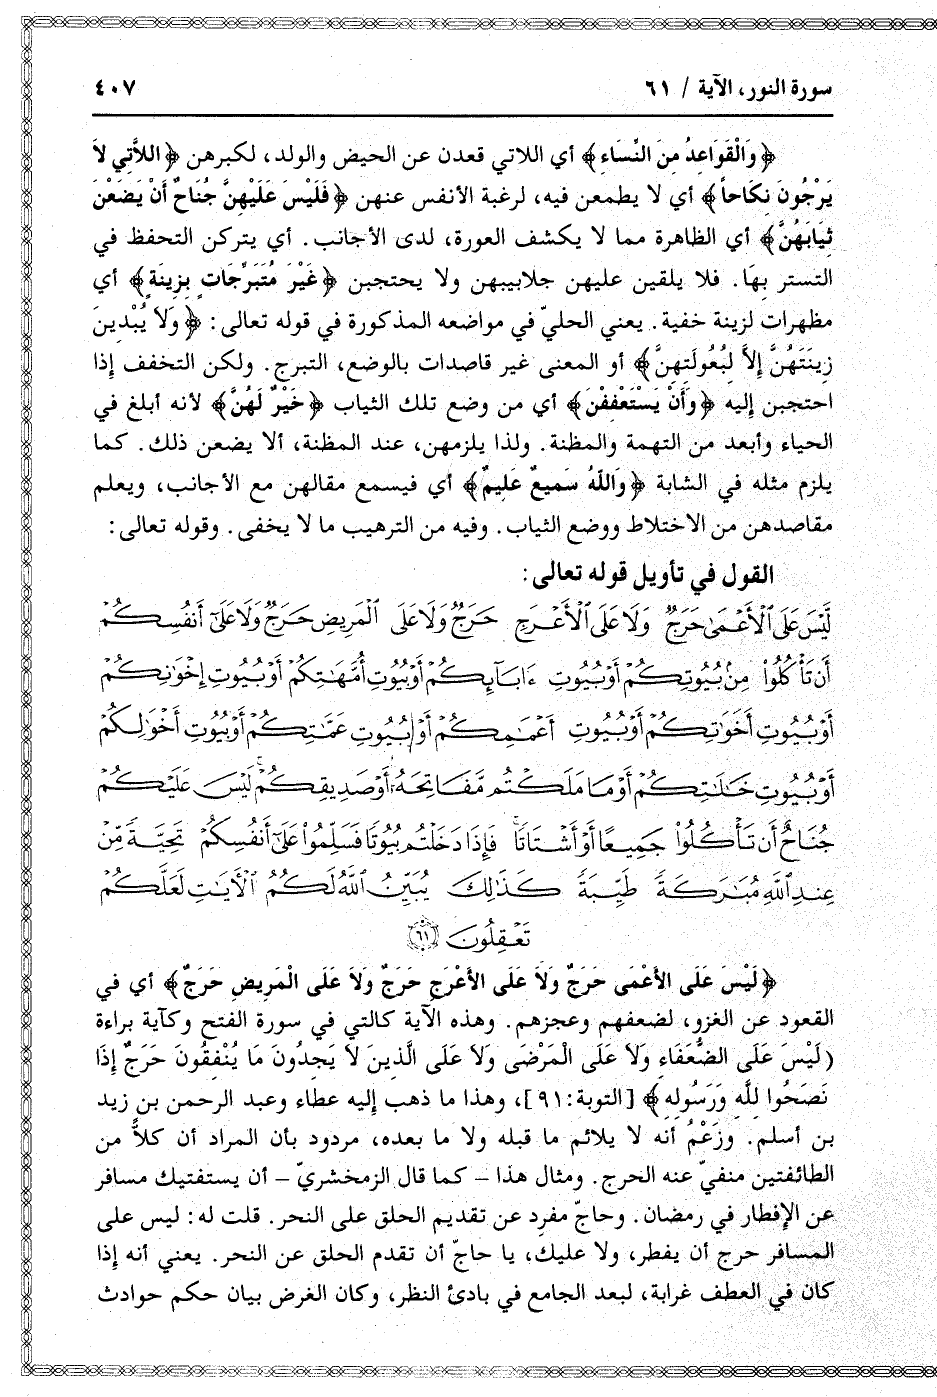 سورة النور، الآية / ٦١
٤٠٧
﴿وَالْقَوَاعِدُ مِنَ النِّسَاءِ﴾ أي اللاتي قعدن عن الحيض والولد، لكبرهن ﴿اللاَّتِي لاَ
يَرْجُونَ نِكَاحاً﴾ أي لا يطمعن فيه، لرغبة الأنفس عنهن ﴿فَلَيْسَ عَلَيْهِنَّ جُنَاحٌ أَنْ يَضَعْنَ
ثِيَابَهُنَّ﴾ أي الظاهرة مما لا يكشف العورة، لدى الأجانب. أي يتركن التحفظ في
التستر بهَا. فلا يلقين عليهن جلابيبهن ولا يحتجبن ﴿غَيْرَ مُتَبَرِّجَاتٍ بِزِينَةٍ﴾ أي
مظهرات لزينة خفية. يعني الحليّ في مواضعه المذكورة في قوله تعالى: ﴿وَلاَ يُبْدِينَ
زِينَتَهُنَّ إِلاَّ لِبُعُولَتِهِنَّ﴾ أو المعنى غير قاصدات بالوضع، التبرج. ولكن التخفف إذا
احتجبن إليه ﴿وَأَنْ يَسْتَعْفِفْنَ﴾ أي من وضع تلك الثياب ﴿خَيْرٌ لَهُنَّ﴾ لأنه أبلغ في
الحياء وأبعد من التهمة والمظنة. ولذا يلزمهن، عند المظنة، ألا يضعن ذلك. كما
يلزم مثله في الشابة ﴿وَاللَّهُ سَمِيعٌ عَلِيمٌ﴾ أي فيسمع مقالهن مع الأجانب، ويعلم
مقاصدهن من الاختلاط ووضع الثياب. وفيه من الترهيب ما لا يخفى. وقوله تعالى:
القول في تأويل قوله تعالى:
لَّيْسَ عَلَى ٱلْأَعْمَىٰ حَرَجٌ وَلَا عَلَى ٱلْأَعْرَجِ حَرَجٌ وَلَا عَلَى ٱلْمَرِيضِ حَرَجٌ وَلَا عَلَىٰٓ أَنفُسِكُمْ
أَن تَأْكُلُوا۟ مِنۢ بُيُوتِكُمْ أَوْ بُيُوتِ ءَابَآئِكُمْ أَوْ بُيُوتِ أُمَّهَٰتِكُمْ أَوْ بُيُوتِ إِخْوَٰنِكُمْ
أَوْ بُيُوتِ أَخَوَٰتِكُمْ أَوْ بُيُوتِ أَعْمَٰمِكُمْ أَوْ بُيُوتِ عَمَّٰتِكُمْ أَوْ بُيُوتِ أَخْوَٰلِكُمْ
أَوْ بُيُوتِ خَٰلَٰتِكُمْ أَوْ مَا مَلَكْتُم مَّفَاتِحَهُۥٓ أَوْ صَدِيقِكُمْ ۚ لَيْسَ عَلَيْكُمْ
جُنَاحٌ أَن تَأْكُلُوا۟ جَمِيعًا أَوْ أَشْتَاتًا ۚ فَإِذَا دَخَلْتُم بُيُوتًا فَسَلِّمُوا۟ عَلَىٰٓ أَنفُسِكُمْ تَحِيَّةً مِّنْ
عِندِ ٱللَّهِ مُبَٰرَكَةً طَيِّبَةً كَذَٰلِكَ يُبَيِّنُ ٱللَّهُ لَكُمُ ٱلْآيَٰتِ لَعَلَّكُمْ
تَعْقِلُونَ ٦١
﴿لَيْسَ عَلَى الأَعْمَى حَرَجٌ وَلاَ عَلَى الأَعْرَجِ حَرَجٌ وَلاَ عَلَى الْمَرِيضِ حَرَجٌ﴾ أي في
القعود عن الغزو، لضعفهم وعجزهم. وهذه الآية كالتي في سورة الفتح وكآية براءة
(لَيْسَ عَلَى الضُّعَفَاءِ وَلاَ عَلَى الْمَرْضَى وَلاَ عَلَى الَّذِينَ لاَ يَجِدُونَ مَا يُنْفِقُونَ حَرَجٌ إِذَا
نَصَحُوا لِلَّهِ وَرَسُولِهِ﴾ [التوبة: ٩١]، وهذا ما ذهب إليه عطاء وعبد الرحمن بن زيد
بن أسلم. وزَعْمُ أنه لا يلائم ما قبله ولا ما بعده، مردود بأن المراد أن كلاًّ من
الطائفتين منفيّ عنه الحرج. ومثال هذا – كما قال الزمخشريّ – أن يستفتيك مسافر
عن الإفطار في رمضان. وحاجّ مفرِد عن تقديم الحلق على النحر. قلت له: ليس على
المسافر حرج أن يفطر، ولا عليك، يا حاجّ أن تقدم الحلق عن النحر. يعني أنه إذا
كان في العطف غرابة، لبعد الجامع في بادئ النظر، وكان الغرض بيان حكم حوادث